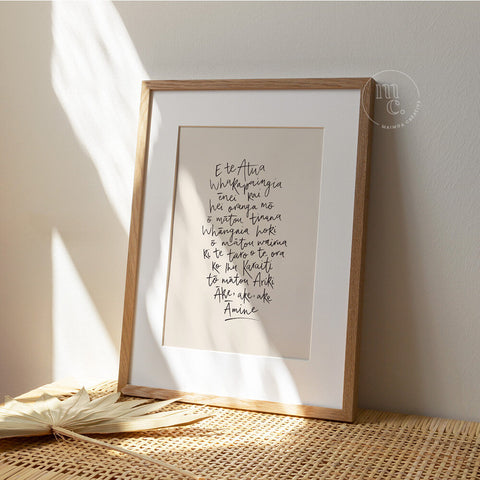 E te Atua
Whakapaingia
ēnei kai
hei oranga mō
ō mātou tinana
Whāngaia hoki
ō mātou wairua
ki te taro o te ora
ko Ihu Karaiti
tō mātou Ariki
Āke, ake, ake
Āmine
mc
Co
MAIMOA CREATIVE